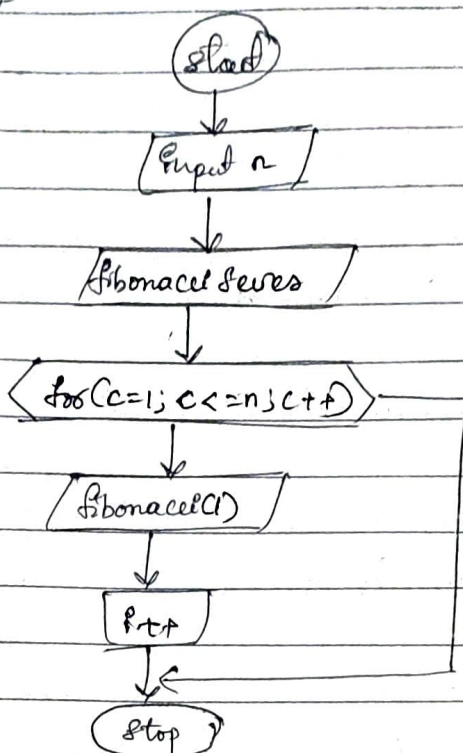 start
input n
fibonacci series
for(c=1; c<=n; c++)
fibonacci(i)
i++
stop